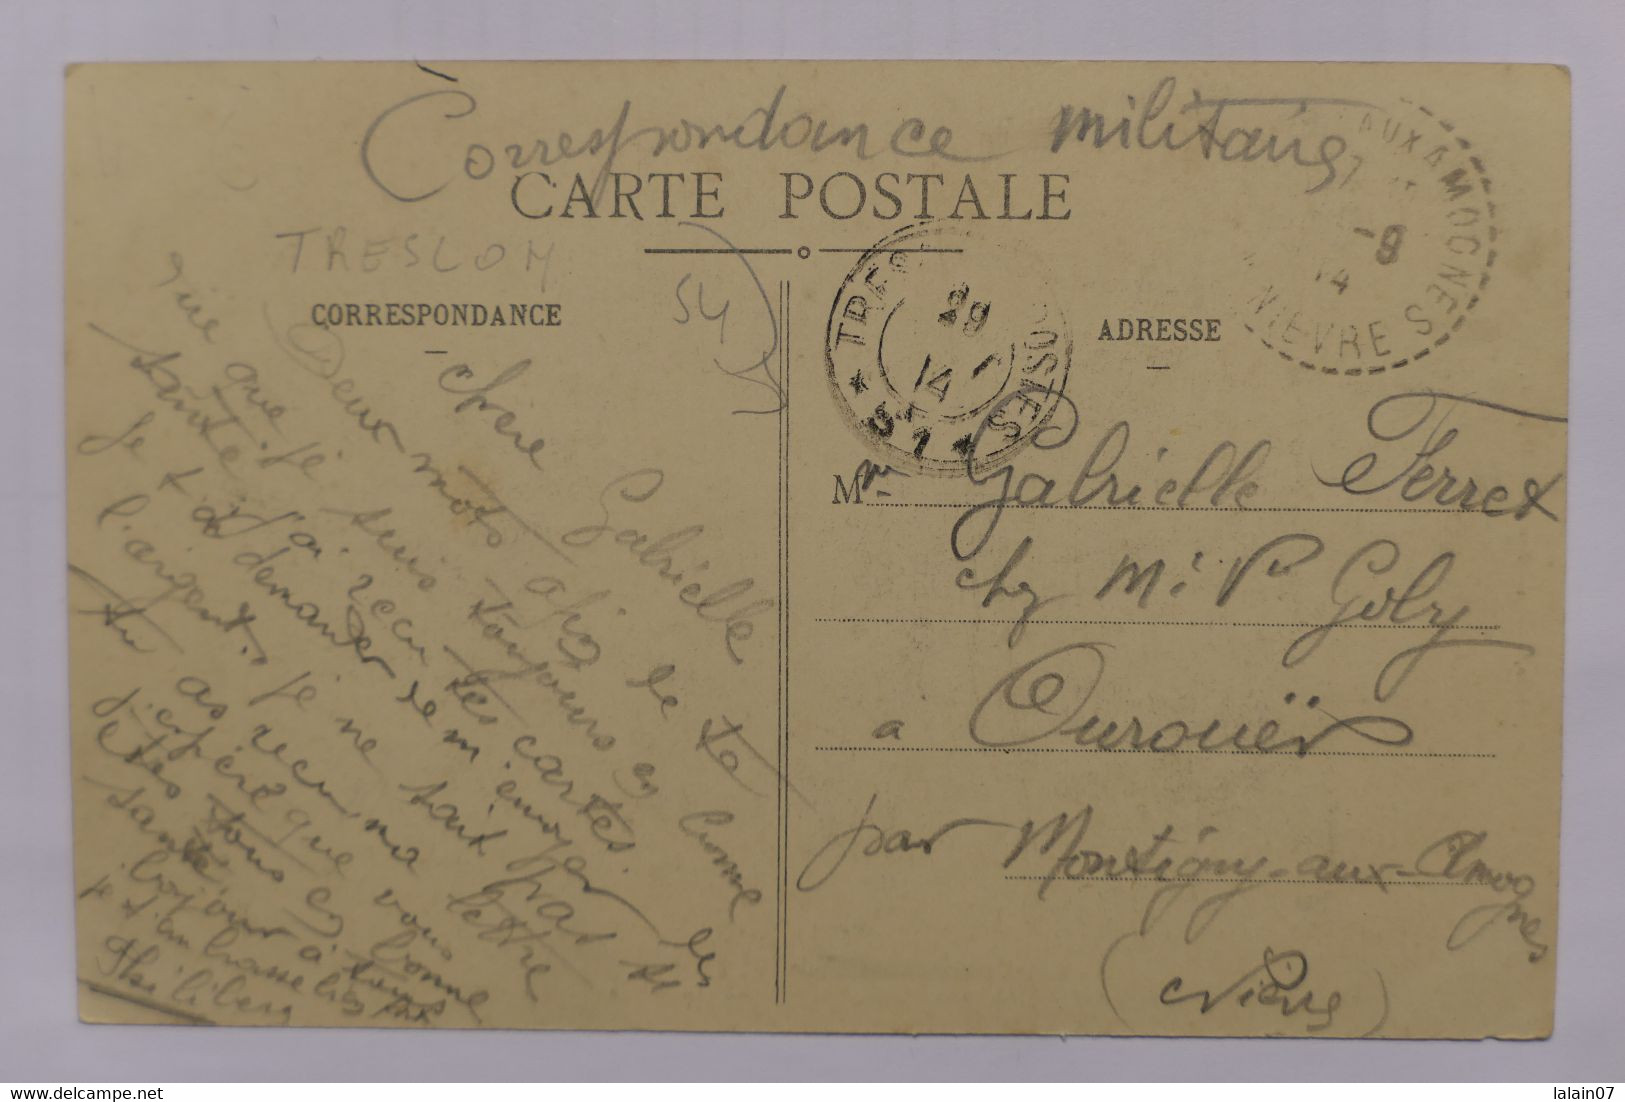 Correspondance militaire
CARTE POSTALE
TRESLOM
54
CORRESPONDANCE
ADRESSE
TRES OSTES
29
14
* 51 *
AUX AMOGNES
-9
14
NIEVRE
chere Gabrielle
Deux mots afin de te
dire que je suis toujours en bonne
santé j'ai recu tes cartes.
je t'ai demander de m'envoyer
l'argent. je ne sait pas si
tu as recu ma lettre
j'espère que vous
êtes tous en bonne
santé. bojour à tous
je t'embrasse
Philibert
Mme Gabrielle Ferret
chez Mr Goby
à Ourouër
par Montigny-aux-Amognes
(Nièvre)
lalain07